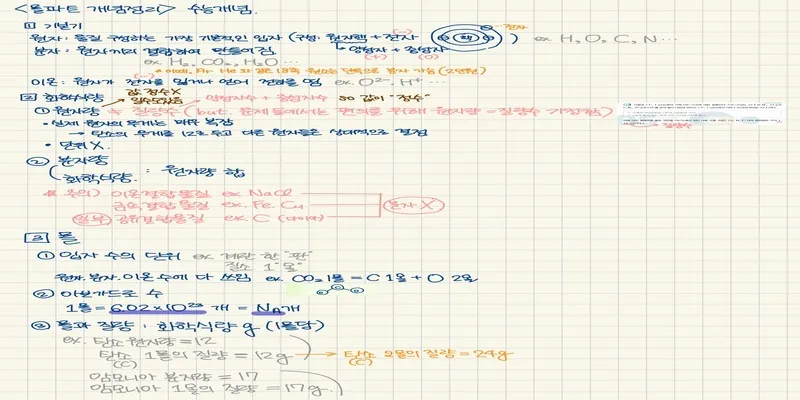 <몰파트 개념정리> 수능개념.
1 기본기
원자 : 물질 구성하는 가장 기본적인 입자 (구성 : 원자핵 + 전자 (-) 핵 전자 ) ex H, O, C, N …
분자 : 원자끼리 결합하여 만들어짐 → 양성자 + 중성자
ex. H₂, CO₂, H₂O … (+) (0)
이온 : 원자가 전자를 잃거나 얻어 전하를 띔 ex. O²⁻, H⁺ …
2 화학식량 값 정수X
① 원자량 ≠ 질량수 (but. 문제 풀에서는 편의를 위해 원자량 = 질량수 가정함)
양성자수 + 중성자수 so 값이 "정수"
질량수
• 실제 원자의 무게는 매우 복잡
→ 탄소의 무게를 12로 두고 다른 원자들은 상대적으로 결정
• 단위 X.
② 분자량
( 화학식량 : 원자량 합
주의) 이온결합물질 ex NaCl
금속결합물질 ex. Fe. Cu 분자 X
일부 공유결합물질 ex. C (다이아)
3 몰
① 입자 수의 단위 ex 계란 한 "판"
질소 1 "몰"
원자. 분자. 이온 수에 다 쓰임 ex. CO₂ 1몰 = C 1몰 + O 2몰
② 아보가드로 수
1몰 = 6.02×10²³ 개 = NA개
③ 몰과 질량 : 화학식량 g (1몰당)
ex. 탄소 원자량 = 12
탄소 1몰의 질량 = 12g → 탄소 2몰의 질량 = 24g
(C) (C)
암모니아 분자량 = 17
암모니아 1몰의 질량 = 17g.